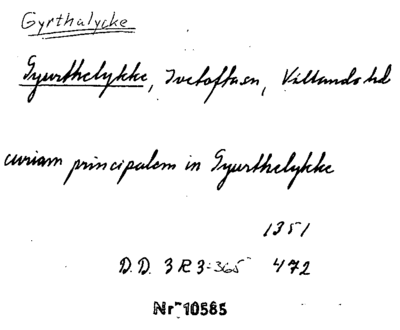 Gyrthalycke
Gyurthelykke, Ivetofta sn, Villands hd
curiam principalem in Gyurthelykke
1351
D.D. 3 R 3:365 472
Nr 10585